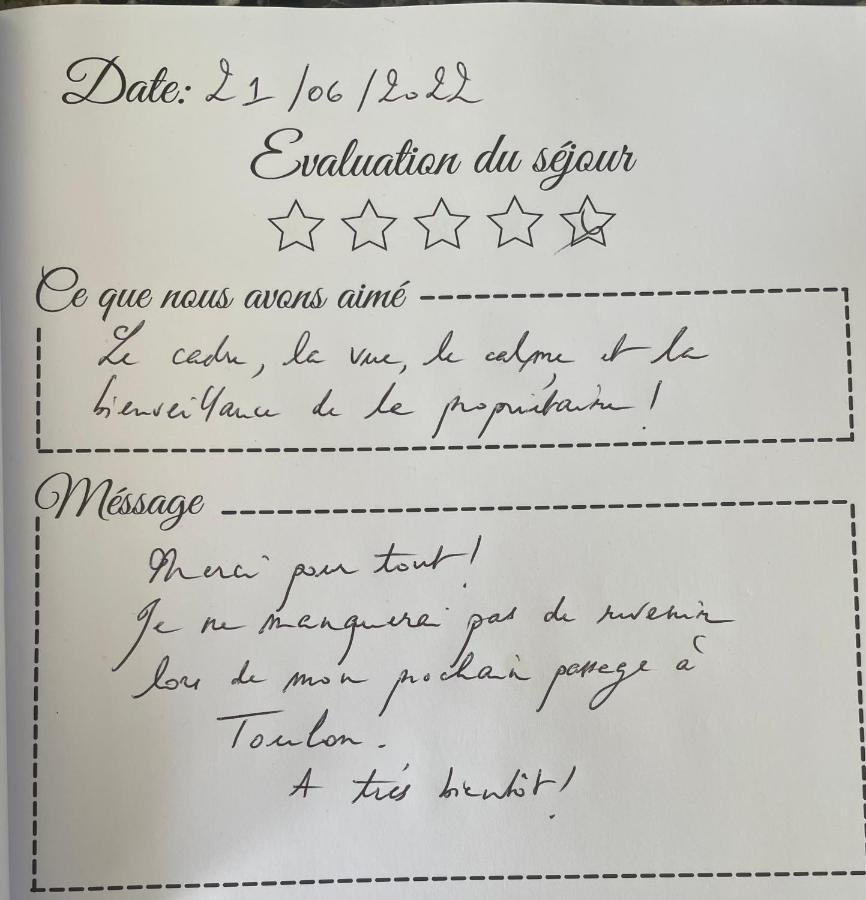 Date: 21/06/2022
Evaluation du séjour
Ce que nous avons aimé
Le cadre, la vue, le calme et la
bienveillance de la propriétaire !
Méssage
Merci pour tout !
Je ne manquerai pas de revenir
lors de mon prochain passage à
Toulon.
A très bientôt !